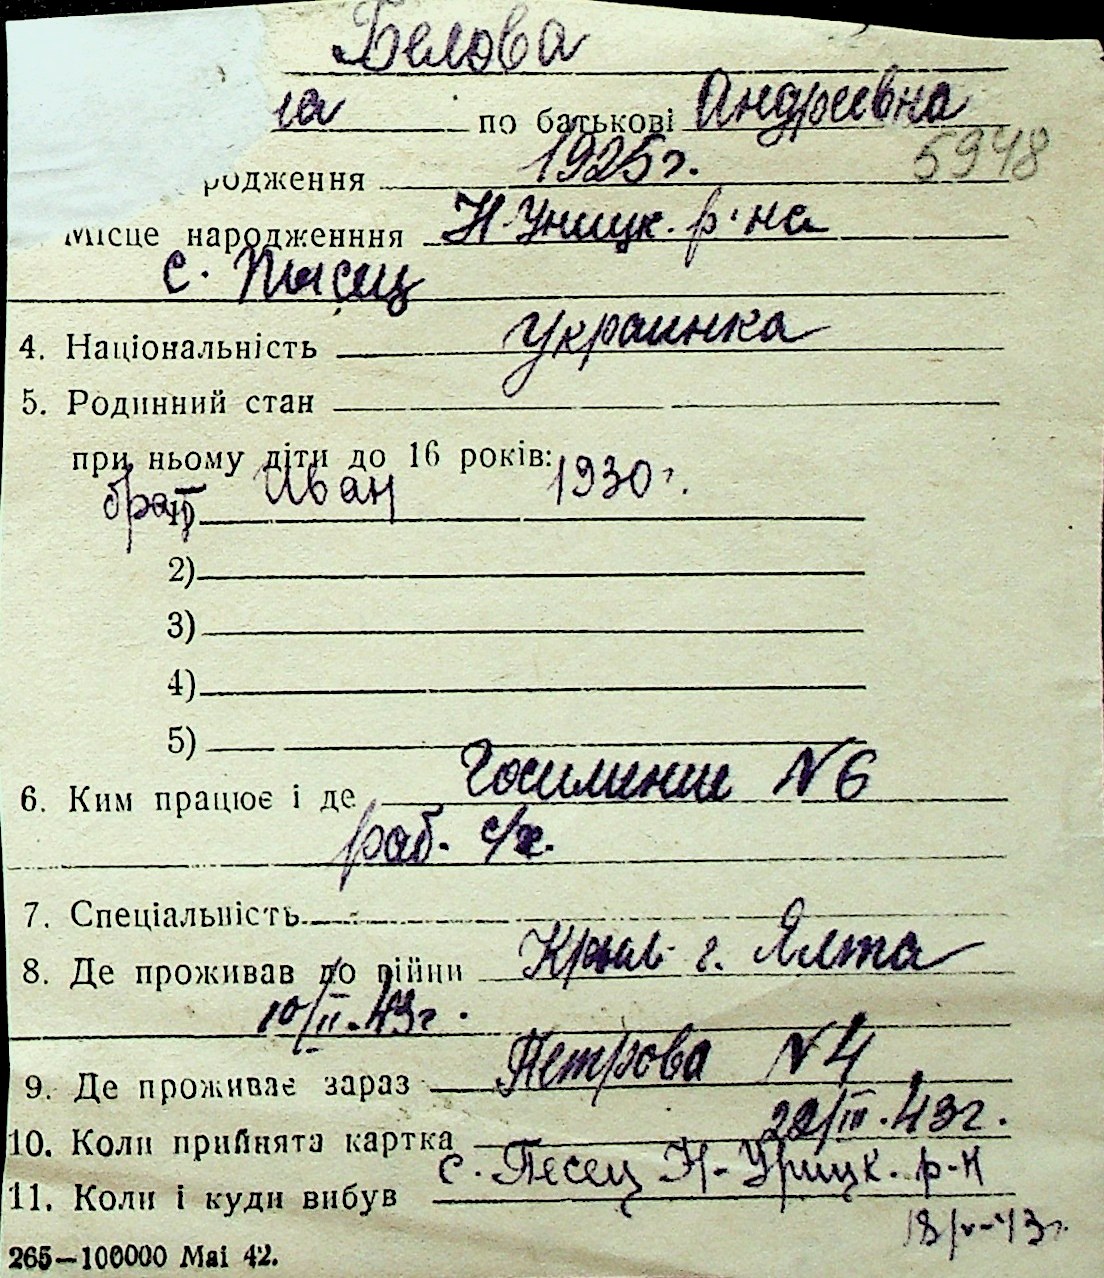 Белова
на по батькові Андреевна
5948
родження 1925г.
Місце народженння Н-Уницк. р-на
с. Пысец
4. Національність Украинка
5. Родинний стан
при ньому діти до 16 років:
брат 1) Иван 1930 г.
2)
3)
4)
5)
6. Ким працює і де Госимение N 6
раб. с/х.
7. Спеціальність
8. Де проживав до війни Крым г. Ялта
10/II.43г.
9. Де проживає зараз Петрова N 4
10. Коли прийнята картка 22/III.43г.
11. Коли і куди вибув с. Песец Н-Урицк. р-н
18/V-43г.
265—100000 Mai 42.